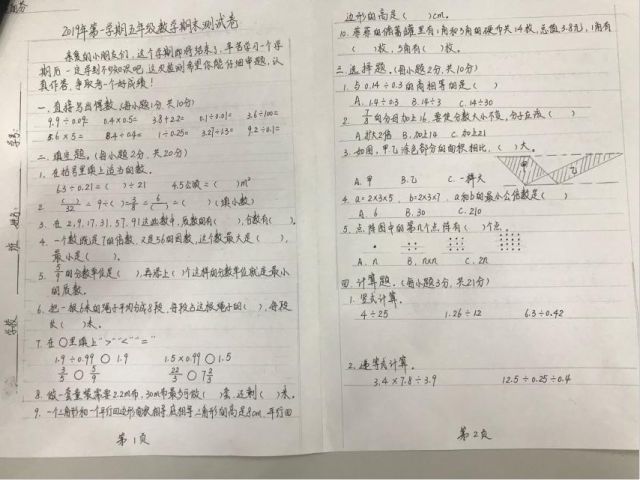 2019年第一学期五年级数学期末测试卷
亲爱的小朋友们,这个学期即将结束了,辛苦学习一个学
期后一定学到不少知识吧,这次监测希望你能仔细审题,认
真作答,争取考一个好成绩!
一.直接写出得数.(每小题1分,共10分)
9.9÷0.09= 0.4×0.5= 3.8+2.2= 0.1÷0.01= 3.6÷100=
5.6×5= 8.4÷0.4= 1÷0.25= 3.27÷1.3= 9.2÷0.1=
二.填空题.(每小题2分,共20分)
1. 在括号里填上适当的数.
6.3÷0.21=( )÷21 4.5公顷=( )m²
2. ( )/32 = 9÷( )=3/8=6/( )=( )(填小数)
3. 在2,9,17,31,57,91这些数中,质数有( ),合数有( ).
4. 一个数既是7的倍数,又是56的因数,这个数最大是( ),
最小是( ).
的分数单位是( ),再添上( )个这样的分数单位就是最小
的质数.
6. 把一根6米的绳子平均分成8段,每段占这根绳子的( ),每段
长( )米.
7. 在○里填上">""<""="
1.9÷0.99○1.9 1.5×0.99○1.5
3/5○5/9 22/3○7 2/3
8. 做一套童装需要2.2m布,30m布最多可做( )套,还剩( )米.
9. 一个三角形和一个平行四边形面积相等,底相等,三角形的高是8cm,平行四
第1页
学号:
姓名:
班
学校
边形的高是( )cm.
10. 蓉蓉的储蓄罐里有1角和5角的硬币共14枚,总值3.8元,1角有
( )枚,5角有( )枚.
三.选择题.(每小题2分,共10分)
1. 与0.14÷0.3的商相等的是( )
A. 1.4÷0.3 B. 14÷3 C. 14÷30
的分母加上16,要使分数大小不变,分子应该( )
A.扩大2倍 B.加上14 C.加上21
3. 如图,甲乙涂色部分的面积相比,( )大.
A. 甲 B. 乙 C. 一样大
甲 乙
4. a=2×3×5, b=2×3×7, a和b的最小公倍数是( )
A. 6 B. 30 C. 210
5. 点阵图中的第n个点阵有( )个点.
A. n B. n×n C. 2n
四.计算题.(每小题3分,共21分)
1. 竖式计算.
4÷25 1.26÷12 6.3÷0.42
2. 递等式计算.
3.4×7.8÷3.9 12.5÷0.25÷0.4
第2页